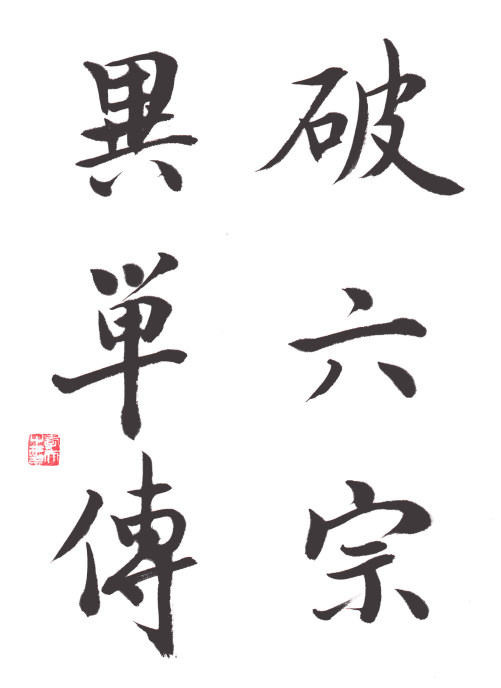 破六宗
異単傳